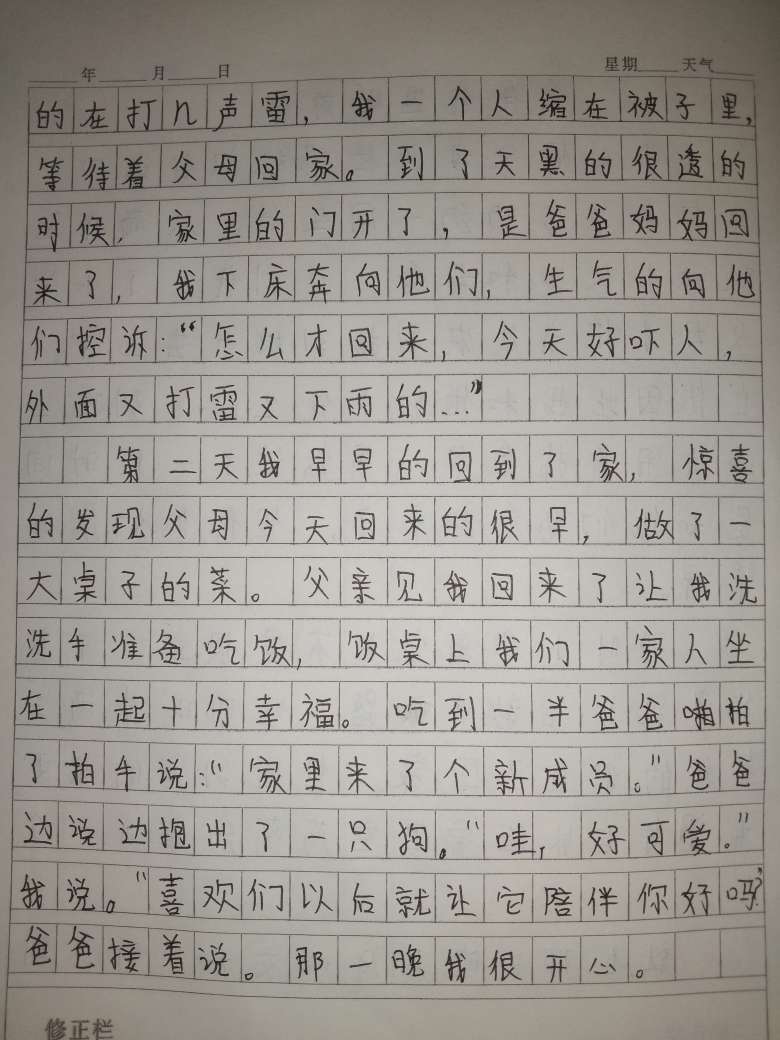 年 月 日 星期 天气
的在打几声雷，我一个人缩在被子里，
等待着父母回家。到了天黑的很透的
时候，家里的门开了，是爸爸妈妈回
来了，我下床奔向他们，生气的向他
们控诉：“怎么才回来，今天好吓人，
外面又打雷又下雨的…”
第二天我早早的回到了家，惊喜
的发现父母今天回来的很早，做了一
大桌子的菜。父亲见我回来了让我洗
洗手准备吃饭，饭桌上我们一家人坐
在一起十分幸福。吃到一半爸爸啪拍
了拍手说：“家里来了个新成员。”爸爸
边说边抱出了一只狗。“哇，好可爱。”
我说。“喜欢们以后就让它陪伴你好吗？”
爸爸接着说。那一晚我很开心。
修正栏